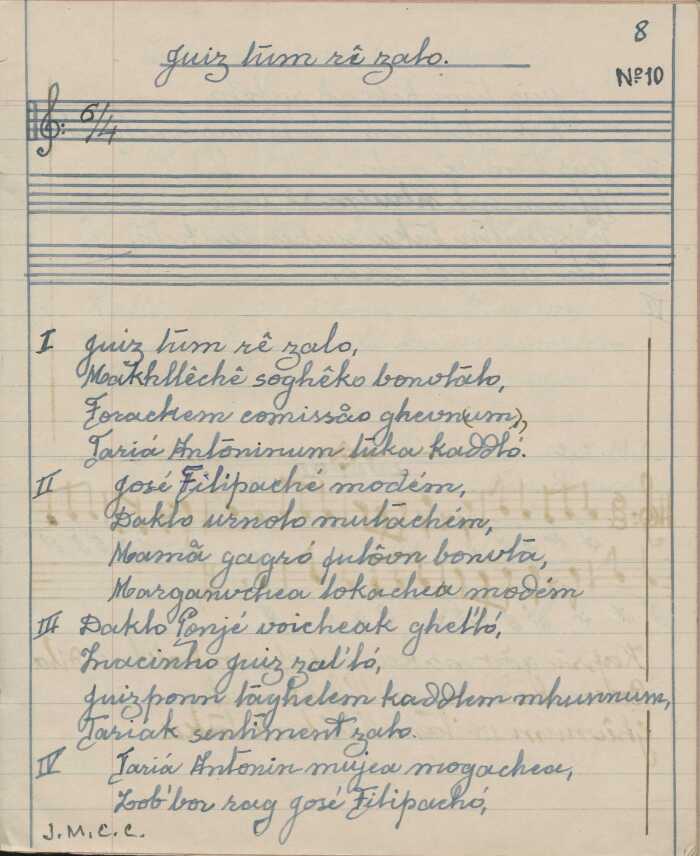 8
Juiz tūm rê zalo.
Nº10
6/4
I Juiz tūm rê zalo,
Mākhllêchê soghêko bonvtālo,
Forackem comissão ghevn(um),
Tariá Antōninum tūka kaddló.
II José Filipaché modém,
Daklo urnolo mutāchém,
Mamã gagró futôvn bonvtā,
Marganvchea lokachea modém
III Daklo Gonjé voicheak ghel'ló,
Inacinho juiz zal'ló,
Juizponn tāghelem kaddlem mhunnum,
Tariak sentiment zalo.
IV Tariá Antonin mujea mogachea,
Lob'bor rag José Filipachó,
J.M.C.C.